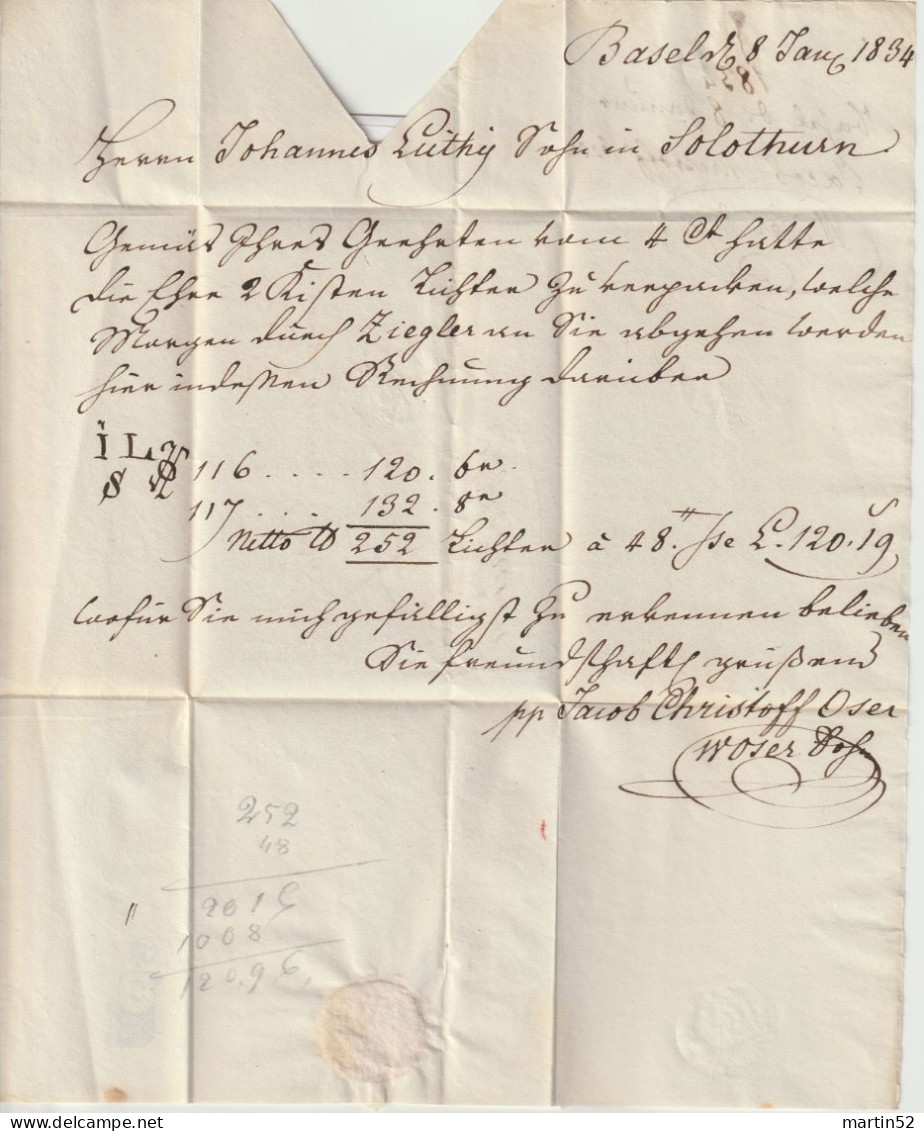 Basel d 8 Jan 1834
Herrn Johannes Lüthÿ Sohn in Solothurn
Gemäs Ihres Geehrten vom 4 Ct hatte
die Ehre 2 Kisten Lichter zu verpacken, welche
Morgen durch Ziegler an Sie abgehen werden
hier indeßen Rechnung darüber
I L
S
116 .... 120. br
117 .... 132. br
Netto ℔ 252 Lichter à 48. L. 120.19
wofür Sie mich gefälligst zu erkennen belieben
Sie freundschaftl grüßend
pp Jacob Christoff Oser
W Oser Sohn
252
48
2016
1008
120.96
martin52